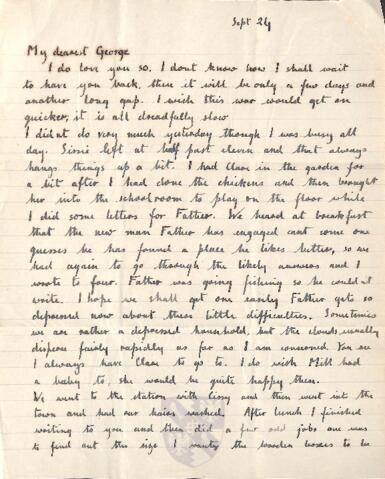 Sept 24
My dearest George
I do love you so. I dont know how I shall wait
to have you back, then it will be only a few days and
another long gap. I wish this war would get on
quicker, it is all dreadfully slow
I didnt do very much yesterday though I was busy all
day. Sissie left at half past eleven and that always
hangs things up a bit. I had Clare in the garden for
a bit after I had done the chickens and then brought
her into the schoolroom to play on the floor while
I did some letters for Father. We heard at breakfast
that the new man Father has engaged cant come one
guesses he has found a place he likes better, so we
had again to go through the likely answers and I
wrote to four. Father was going fishing so he couldnt
write. I hope we shall get one easily Father gets so
depressed now about these little difficulties. Sometimes
we are rather a depressed household, but the clouds usually
disperse fairly rapidly as far as I am concerned. You see
I always have Clare to go to. I do wish Mill had
a baby to, she would be quite happy then.
We went to the station with Cissy and then went into the
town and had our hairs washed. After lunch I finished
writing to you and then did a few odd jobs one was
to find out the size I wants the wooden boxes to be